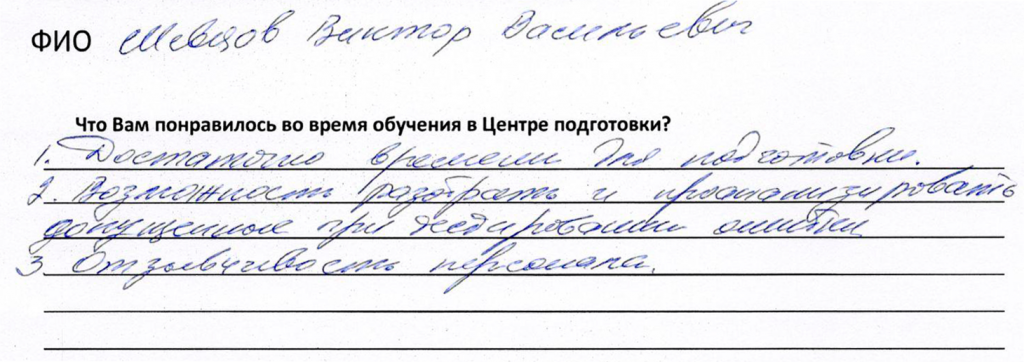 ФИО Шевцов Виктор Васильевич
Что Вам понравилось во время обучения в Центре подготовки?
1. Достаточно времени для подготовки.
2. Возможность разобрать и проанализировать
допущенные при тестировании ошибки
3. Отзывчивость персонала.